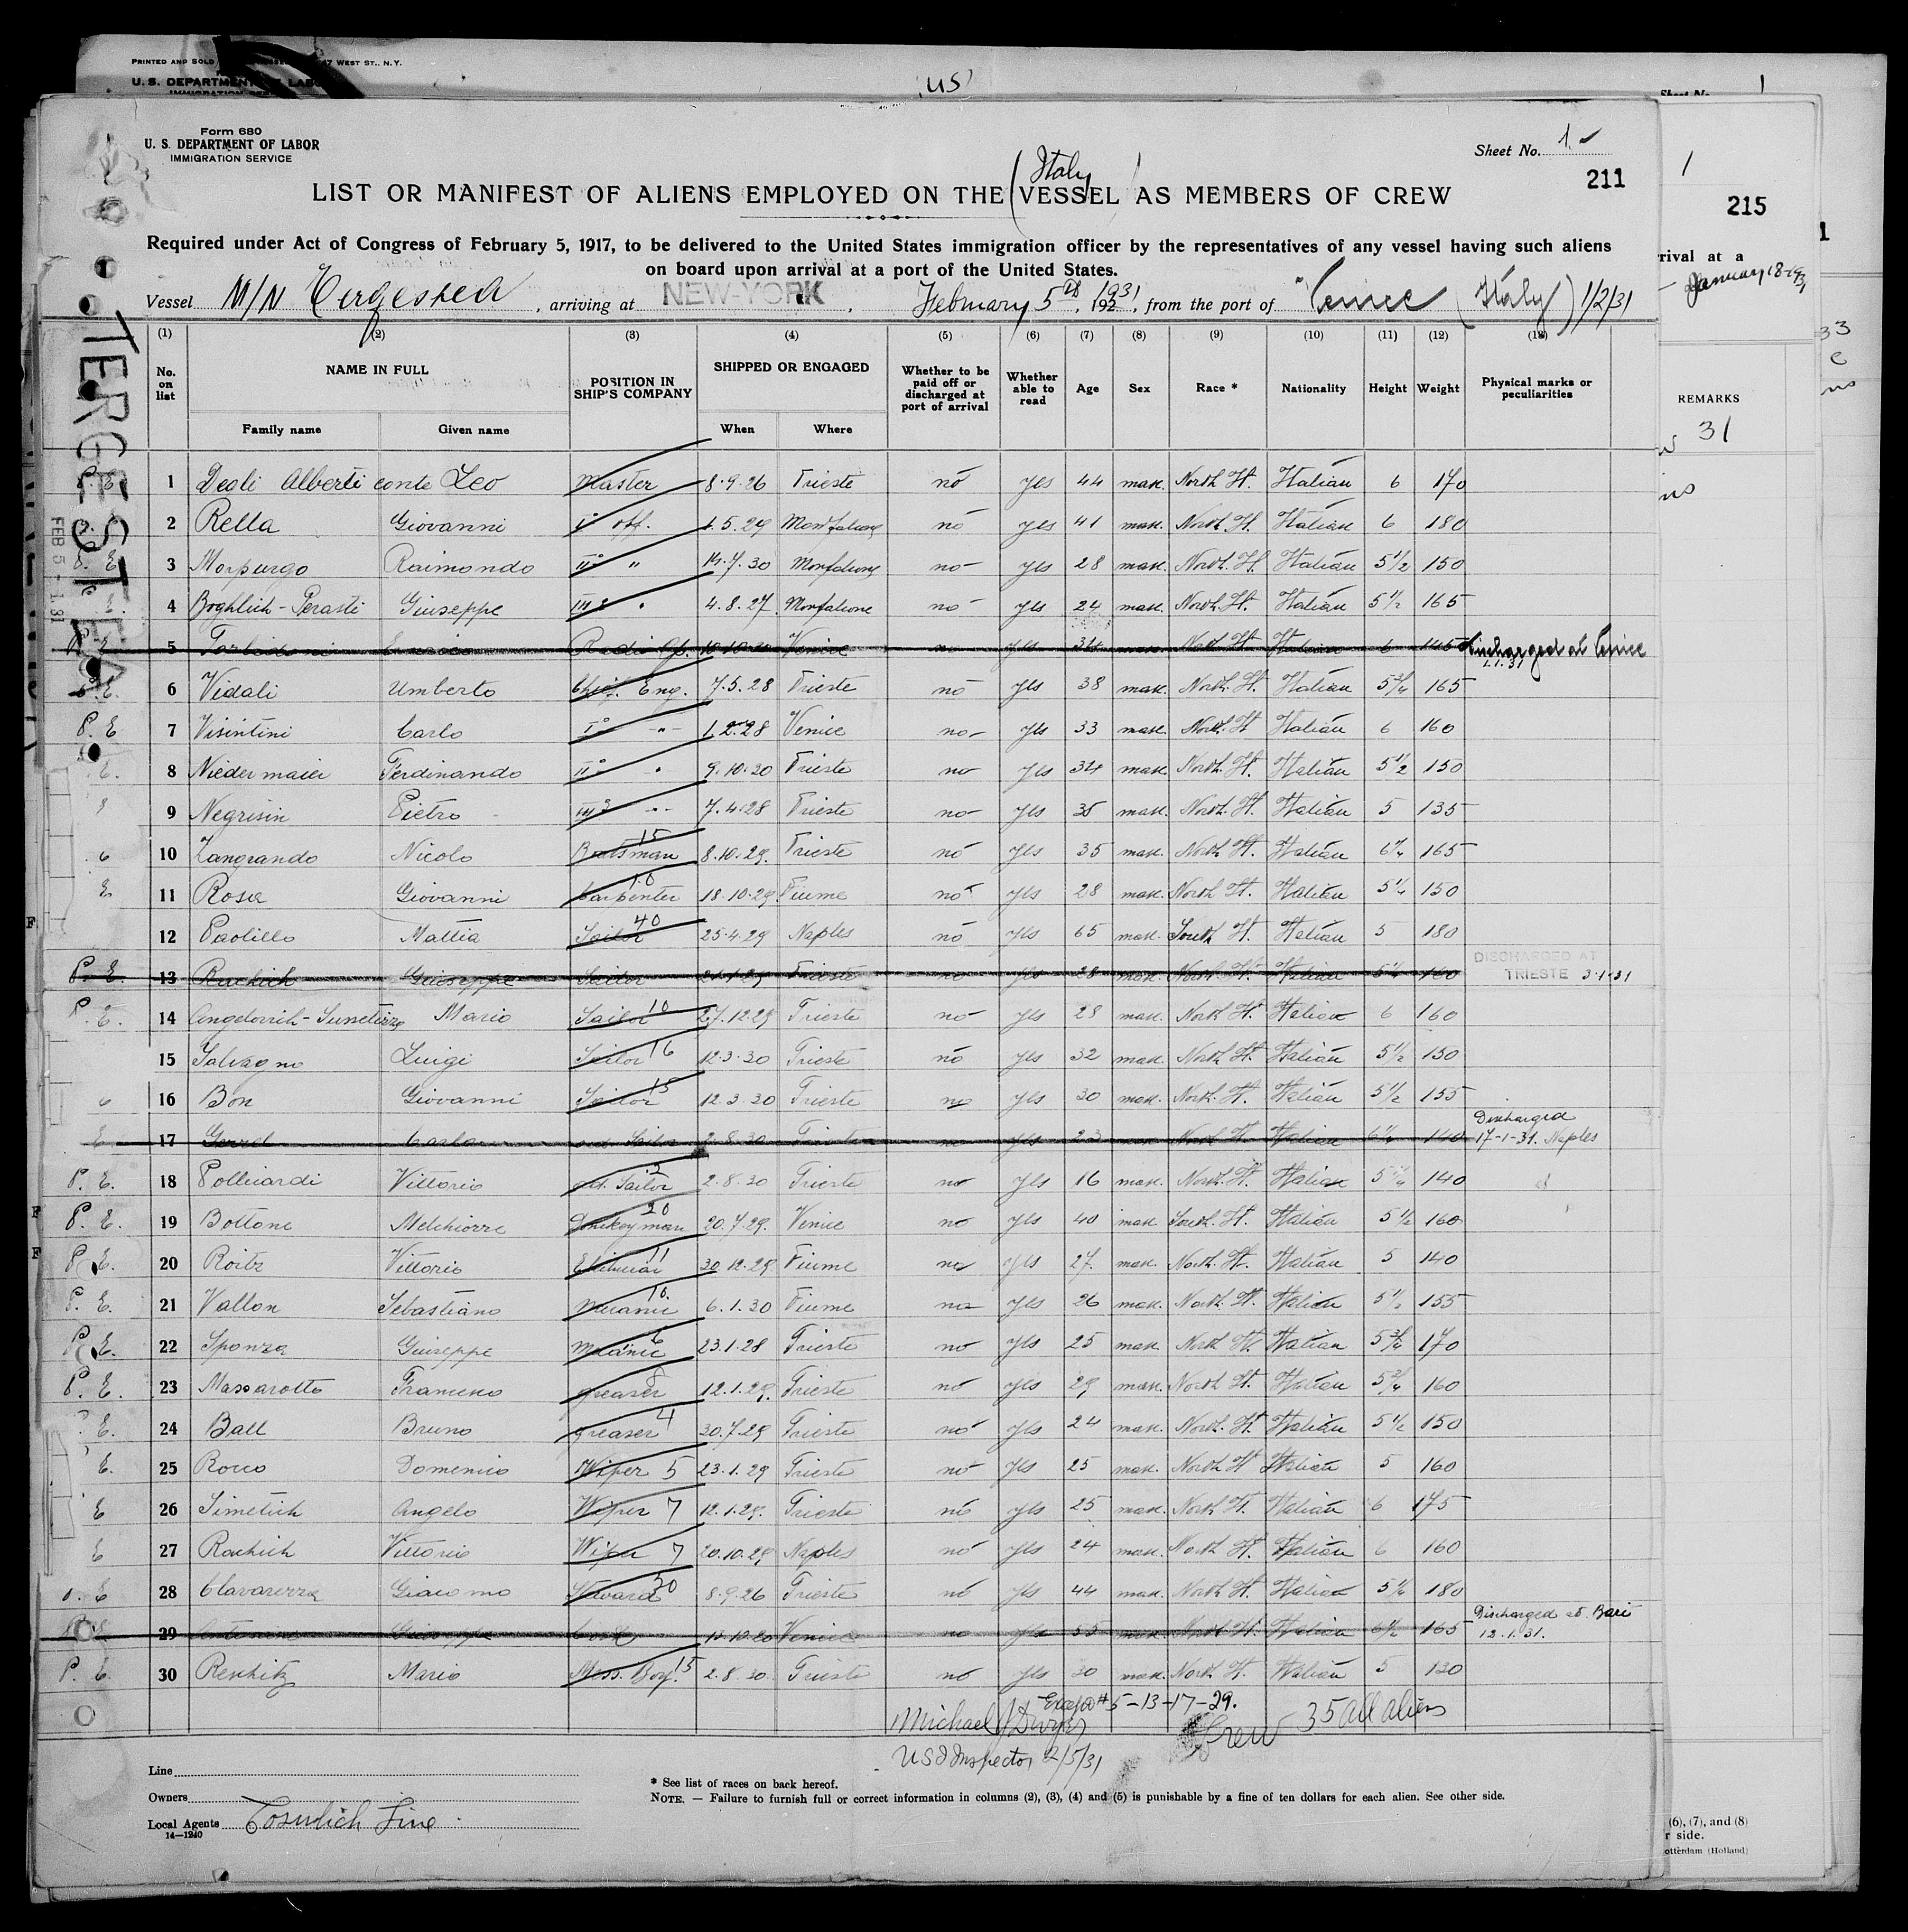 PRINTED AND SOLD 47 WEST ST., N.Y.
U. S. DEPARTMENT OF LABOR
US
Sheet No. 1
Form 680
U. S. DEPARTMENT OF LABOR
IMMIGRATION SERVICE
Sheet No. 1
211
Italy
LIST OR MANIFEST OF ALIENS EMPLOYED ON THE VESSEL AS MEMBERS OF CREW
Required under Act of Congress of February 5, 1917, to be delivered to the United States immigration officer by the representatives of any vessel having such aliens
on board upon arrival at a port of the United States.
Vessel M/N Tergestea, arriving at NEW-YORK, February 5th, 192 1931, from the port of Venice (Italy) 1/2/31
TERGESTEA
FEB 5 - 1931
(1) (2) (3) (4) (5) (6) (7) (8) (9) (10) (11) (12) (13)
No. on list NAME IN FULL POSITION IN SHIP'S COMPANY SHIPPED OR ENGAGED Whether to be paid off or discharged at port of arrival Whether able to read Age Sex Race * Nationality Height Weight Physical marks or peculiarities
Family name Given name When Where
1 Degli Alberti conte Leo Master 8.9.26 Trieste no yes 44 mas. North It. Italian 6 170
2 Rella Giovanni I° off. 1.5.29 Monfalcone no yes 41 mas. North It. Italian 6 180
P. E. 3 Morpurgo Raimondo II° " 14.7.30 Monfalcone no yes 28 mas. North. It. Italian 5 1/2 150
4 Giuseppe III° " 4.8.27 Monfalcone no yes 24 mas. North. It. Italian 5 1/2 165
5 Venice 34 Italian 6 145 Discharged at Venice
1.1.31
P. E. 6 Vidali Umberto Chief. Eng. 7.5.28 Trieste no yes 38 mas. North. It. Italian 5 3/4 165
P. E 7 Visintini Carlo I° " 1.2.28 Venice no yes 33 mas. North. It Italian 6 160
E. 8 Niedermaier Ferdinando II° " 9.10.20 Trieste no yes 34 mas. North. It. Italian 5 1/2 150
9 Negrisin Pietro III° " 7.4.28 Trieste no yes 35 mas. North. It. Italian 5 135
10 Zangrando Nicolo Boatsman 15 8.10.29. Trieste no yes 35 mas. North It. Italian 6 1/4 165
E 11 Rosa Giovanni Carpenter 10 18.10.29 Fiume no yes 28 mas. North It. Italian 5 1/4 150
12 Paolillo Mattia Sailor 40 25.4.29 Naples no yes 65 mas. South It. Italian 5 180
P. E. 13 Rackich Giuseppe Sailor Trieste no yes 28 mas. North It. Italian 160 DISCHARGED AT
TRIESTE 3-1-31
P. E. 14 Mario Sailor 10 27.12.29 Trieste no yes 28 mas. North It. Italian 6 160
15 Salvagno Luigi Sailor 16 12.3.30 Trieste no yes 32 mas. North It. Italian 5 1/2 150
16 Bon Giovanni Sailor 15 12.3.30 Trieste no yes 30 mas. North. It. Italian 5 1/2 155
E. 17 Carlo Sailor 2.8.30 Trieste no yes 23 mas. North It. Italian 140 Discharged
17-1-31. Naples
P. E. 18 Vittorio Sailor 2.8.30 Trieste no yes 16 mas. North. It. Italian 140
P. E. 19 Bottone Melchiorre Donkeyman 20 20.7.29. Venice no yes 40 mas. South. It. Italian 5 1/2 160
P. E. 20 Vittorio 11 30.12.29. Fiume no yes 27. mas. North. It. Italian 5 140
P. E. 21 Vallon Sebastiano Mecanic 6.1.30 Fiume no yes 26 mas. North. It. Italian 5 1/2 155
P. E. 22 Sponza Giuseppe Mecanic 6 23.1.28 Trieste no yes 25 mas. North It. Italian 5 3/4 170
P. E. 23 Massarotto Francesco greaser 8 12.1.29. Trieste no yes 29 mas. North It. Italian 5 3/4 160
E. 24 Ball Bruno greaser 4 30.7.29 Trieste no yes 24 mas. North. It. Italian 5 1/2 150
E. 25 Rocco Domenico Wiper 5 23.1.29 Trieste no yes 25 mas. North It Italian 5 160
E 26 Simetich Angelo Wiper 7 12.1.29. Trieste no yes 25 mas. North It. Italian 6 175
E 27 Rackich Vittorio Wiper 7 20.10.29 Naples no yes 24 mas. North It. Italian 6 160
E 28 Clavarezza Giacomo Steward 30 8.9.26 Trieste no yes 44 mas. North It. Italian 180
29 Giuseppe Cook Venice no yes 55 mas. North It. Italian 6 1/2 165 Discharged at Bari
12.1.31.
P. E. 30 Reschitz Mario Mess. Boy. 15 2.8.30. Trieste no yes 30 mas. North It. Italian 5 130
Except # 5-13-17-29.
Michael J Dwyer Crew 35 all aliens
US Inspector 2/5/31
Line
Owners
Local Agents Cosulich Line
14—1240
* See list of races on back hereof.
NOTE. — Failure to furnish full or correct information in columns (2), (3), (4) and (5) is punishable by a fine of ten dollars for each alien. See other side.
1
215
rrival at a
January 18-1931
REMARKS
31
(6), (7), and (8)
r side.
otterdam (Holland)
1
33